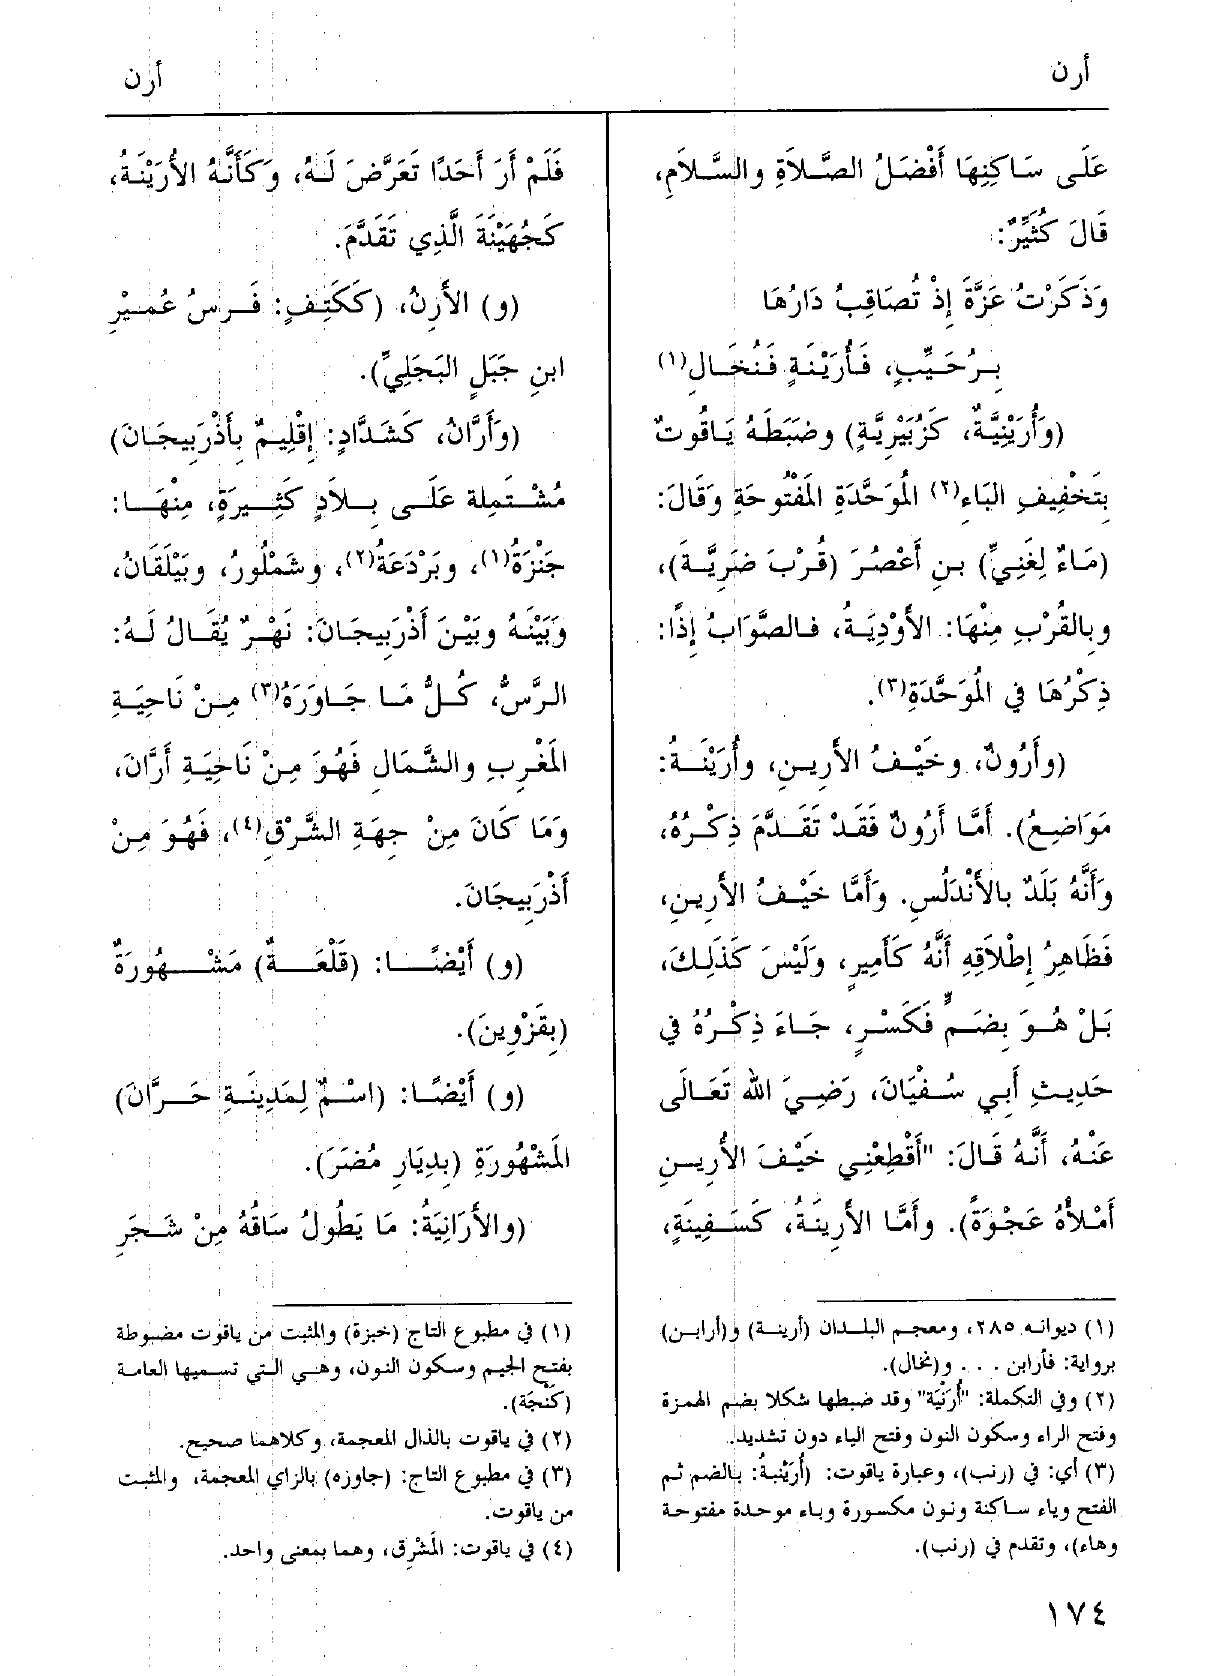 أرن
أرن
عَلَى سَاكِنِهَا أَفْضَلُ الصَّلاَةِ والسَّلاَمِ،
قَالَ كُثَيِّرٌ:
وَذَكَرْتُ عَزَّةَ إِذْ تُصَاقِبُ دَارُهَا
بِرُحَيِّبٍ، فَأُرَيْنَةٍ فَنُخَالِ(١)
(وَأُرَيْنِيَّةُ، كَزُبَيْرِيَّةٍ) وضَبَطَهُ يَاقُوتٌ
بِتَخْفِيفِ البَاءِ(٢) المُوَحَّدَةِ المَفْتُوحَةِ وَقَالَ:
(مَاءٌ لِغَنِيِّ) بنِ أَعْصُرَ (قُرْبَ ضَرِيَّةَ)،
وبِالقُرْبِ مِنْهَا: الأَوْدِيَةُ، فالصَّوَابُ إِذًا:
ذِكْرُهَا فِي المُوَحَّدَةِ(٣).
(وأَرُونٌ، وخَيْفُ الأَرِينِ، وأُرَيْنَةُ:
مَوَاضِعُ). أَمَّا أَرُونٌ فَقَدْ تَقَدَّمَ ذِكْرُهُ،
وَأَنَّهُ بَلَدٌ بالأَنْدَلُسِ. وَأَمَّا خَيْفُ الأَرِينِ،
فَظَاهِرُ إِطْلاَقِهِ أَنَّهُ كَأَمِيرٍ، وَلَيْسَ كَذَلِكَ،
بَلْ هُوَ بِضَمٍّ فَكَسْرٍ، جَاءَ ذِكْرُهُ فِي
حَدِيثِ أَبِي سُفْيَانَ، رَضِيَ الله تَعَالَى
عَنْهُ، أَنَّهُ قَالَ: "أَقْطِعْنِي خَيْفَ الأُرِينِ
أَمْلأُهُ عَجْوَةً). وأَمَّا الأَرِينَةُ، كَسَفِينَةٍ،
(١) ديوانه ٢٨٥، ومعجم البلدان (أرينة) و(أرابن)
برواية: فأرابن . . . و(نخال).
(٢) وفي التكملة: "أُرَنْيَة" وقد ضبطها شكلا بضم الهمزة
وفتح الراء وسكون النون وفتح الياء دون تشديد.
(٣) أي: في (رنب)، وعبارة ياقوت: (أُرَيْنِبةُ: بالضم ثم
الفتح وياء ساكنة ونون مكسورة وباء موحدة مفتوحة
وهاء)، وتقدم في (رنب).
فَلَمْ أَرَ أَحَدًا تَعَرَّضَ لَهُ، وَكَأَنَّهُ الأُرَيْنَةُ،
كَجُهَيْنَةَ الَّذِي تَقَدَّمَ.
(و) الأَرِنُ، (كَكَتِفٍ: فَرَسُ عُمَيْرِ
ابنِ جَبَلٍ البَجَلِيِّ).
(وَأَرَّانُ، كَشَدَّادٍ: إِقْلِيمٌ بِأَذْرَبِيجَانَ)
مُشْتَمِلة عَلَى بِلاَدٍ كَثِيرَةٍ، مِنْهَا:
جَنْزَةُ(١)، وبَرْدَعَةُ(٢)، وشَمْلُورُ، وبَيْلَقَانُ،
وَبَيْنَهُ وبَيْنَ أَذْرَبِيجَانَ: نَهْرٌ يُقَالُ لَهُ:
الرَّسُّ، كُلُّ مَا جَاوَرَهُ(٣) مِنْ نَاحِيَةِ
المَغْرِبِ والشَّمَالِ فَهُوَ مِنْ نَاحِيَةِ أَرَّانَ،
وَمَا كَانَ مِنْ جِهَةِ الشَّرْقِ(٤)، فَهُوَ مِنْ
أَذْرَبِيجَانَ.
(و) أَيْضًا: (قَلْعَةٌ) مَشْهُورَةٌ
(بِقَزْوِينَ).
(و) أَيْضًا: (اسْمٌ لِمَدِينَةِ حَرَّانَ)
المَشْهُورَةِ (بِدِيَارِ مُضَرَ).
(والأَرَانِيَةُ: مَا يَطُولُ سَاقُهُ مِنْ شَجَرِ
(١) في مطبوع التاج (خبزة) والمثبت من ياقوت مضبوطة
بفتح الجيم وسكون النون، وهي التي تسميها العامة
(كَنْجَة).
(٢) في ياقوت بالذال المعجمة، وكلاهما صحيح.
(٣) في مطبوع التاج: (جاوزه) بالزاي المعجمة، والمثبت
من ياقوت.
(٤) في ياقوت: المَشْرِق، وهما بمعنى واحد.
١٧٤